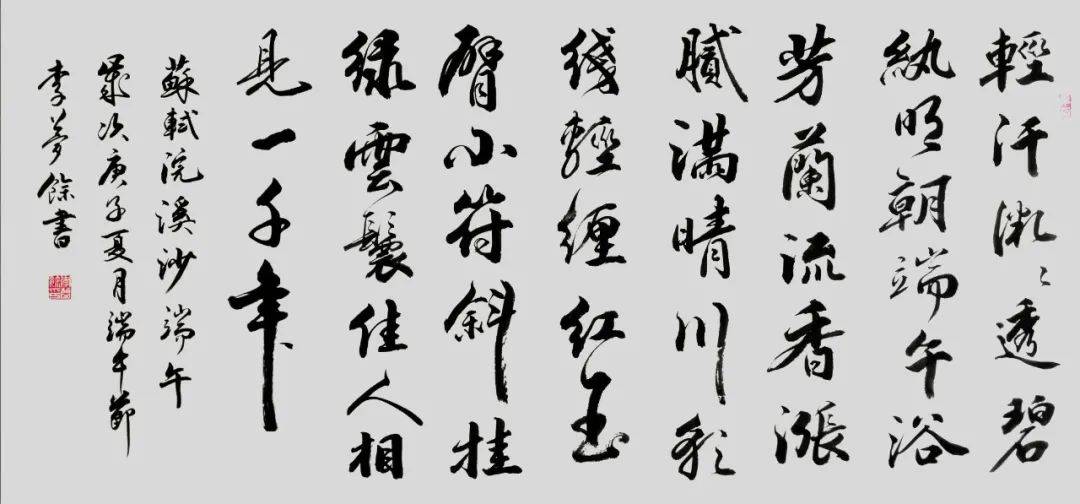 輕汗微〻透碧
紈明朝端午浴
芳蘭流香漲
膩滿晴川彩
綫輕纏紅玉
臂小符斜挂
緑雲鬟佳人相
見一千年
蘇軾浣溪沙端午
歲次庚子夏月端午節
李夢餘書